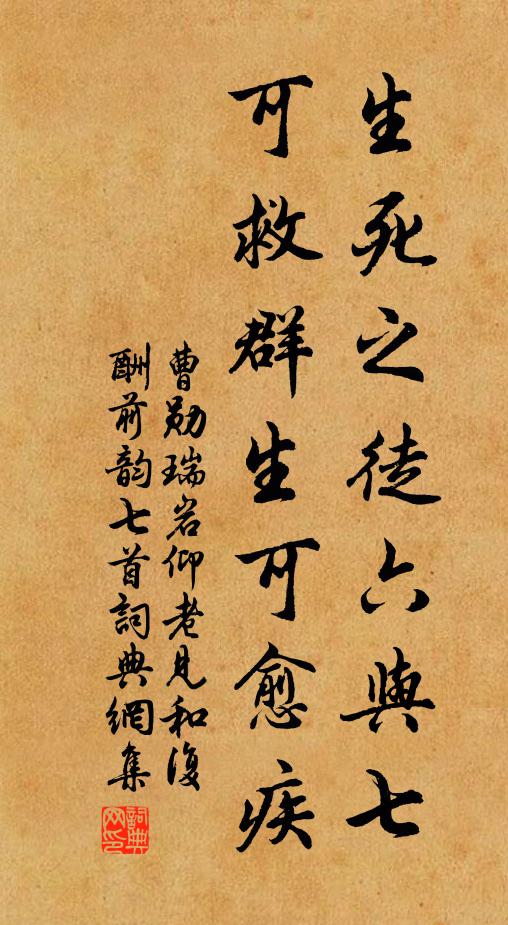 生死之徒六與七
可救群生可愈疾
曹勛瑞岩仰老見和復
酬前韵七首詞典網集
詞典网印